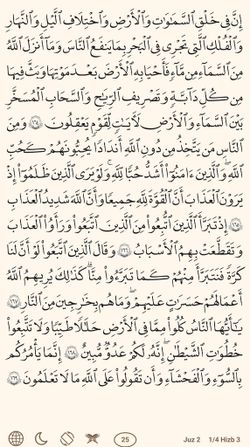 إِنَّ فِي خَلْقِ ٱلسَّمَٰوَٰتِ وَٱلْأَرْضِ وَٱخْتِلَٰفِ ٱلَّيْلِ وَٱلنَّهَارِ
وَٱلْفُلْكِ ٱلَّتِي تَجْرِي فِي ٱلْبَحْرِ بِمَا يَنفَعُ ٱلنَّاسَ وَمَآ أَنزَلَ ٱللَّهُ
مِنَ ٱلسَّمَآءِ مِن مَّآءٍ فَأَحْيَا بِهِ ٱلْأَرْضَ بَعْدَ مَوْتِهَا وَبَثَّ فِيهَا
مِن كُلِّ دَآبَّةٍ وَتَصْرِيفِ ٱلرِّيَٰحِ وَٱلسَّحَابِ ٱلْمُسَخَّرِ
بَيْنَ ٱلسَّمَآءِ وَٱلْأَرْضِ لَءَايَٰتٍ لِّقَوْمٍ يَعْقِلُونَ ١٦٤ وَمِنَ
ٱلنَّاسِ مَن يَتَّخِذُ مِن دُونِ ٱللَّهِ أَندَادًا يُحِبُّونَهُمْ كَحُبِّ
ٱللَّهِ وَٱلَّذِينَ ءَامَنُوٓا۟ أَشَدُّ حُبًّا لِّلَّهِ وَلَوْ يَرَى ٱلَّذِينَ ظَلَمُوٓا۟ إِذْ
يَرَوْنَ ٱلْعَذَابَ أَنَّ ٱلْقُوَّةَ لِلَّهِ جَمِيعًا وَأَنَّ ٱللَّهَ شَدِيدُ ٱلْعَذَابِ
١٦٥ إِذْ تَبَرَّأَ ٱلَّذِينَ ٱتُّبِعُوا۟ مِنَ ٱلَّذِينَ ٱتَّبَعُوا۟ وَرَأَوُا۟ ٱلْعَذَابَ
وَتَقَطَّعَتْ بِهِمُ ٱلْأَسْبَابُ ١٦٦ وَقَالَ ٱلَّذِينَ ٱتَّبَعُوا۟ لَوْ أَنَّ لَنَا
كَرَّةً فَنَتَبَرَّأَ مِنْهُمْ كَمَا تَبَرَّءُوا۟ مِنَّا كَذَٰلِكَ يُرِيهِمُ ٱللَّهُ
أَعْمَٰلَهُمْ حَسَرَٰتٍ عَلَيْهِمْ وَمَا هُم بِخَٰرِجِينَ مِنَ ٱلنَّارِ ١٦٧
يَٰٓأَيُّهَا ٱلنَّاسُ كُلُوا۟ مِمَّا فِي ٱلْأَرْضِ حَلَٰلًا طَيِّبًا وَلَا تَتَّبِعُوا۟
خُطُوَٰتِ ٱلشَّيْطَٰنِ إِنَّهُۥ لَكُمْ عَدُوٌّ مُّبِينٌ ١٦٨ إِنَّمَا يَأْمُرُكُم
بِٱلسُّوٓءِ وَٱلْفَحْشَآءِ وَأَن تَقُولُوا۟ عَلَى ٱللَّهِ مَا لَا تَعْلَمُونَ ١٦٩
25 Juz 2 1/4 Hizb 3